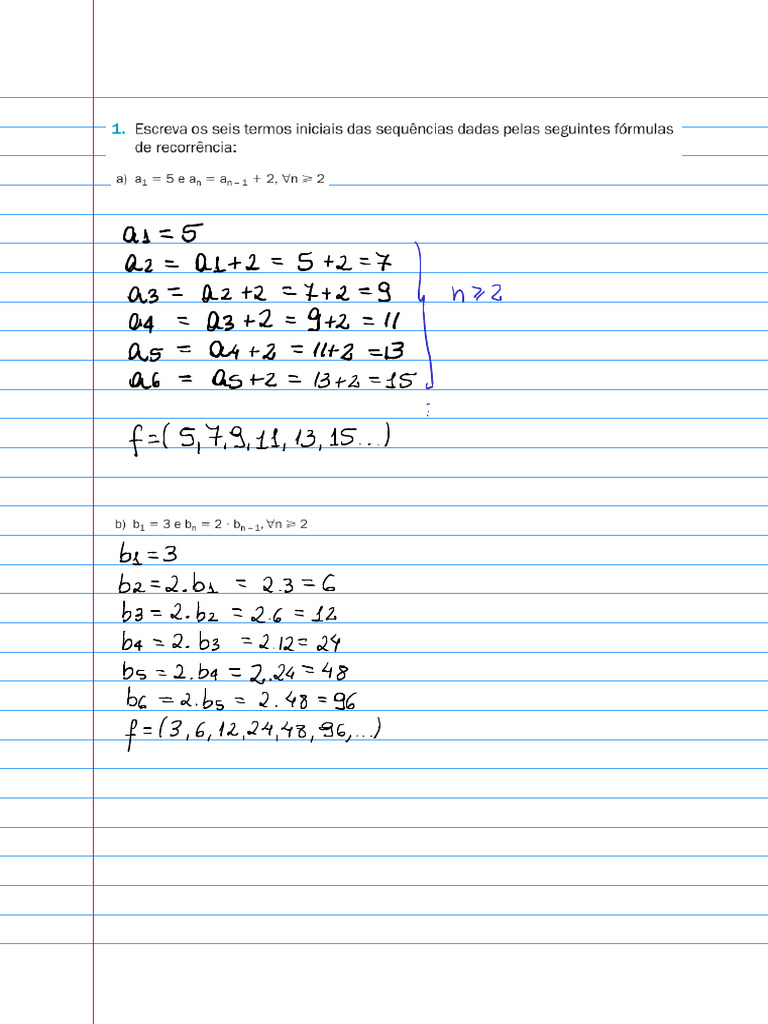 1. Escreva os seis termos iniciais das sequências dadas pelas seguintes fórmulas
de recorrência:
a) a₁ = 5 e aₙ = aₙ₋₁ + 2, ∀n ⩾ 2
a1 = 5
a2 = a1+2 = 5+2=7
a3 = a2+2 = 7+2=9
n⩾2
a4 = a3+2 = 9+2 = 11
a5 = a4+2 = 11+2 =13
a6 = a5+2 = 13+2=15
⋮
f=(5,7,9,11,13,15...)
b) b₁ = 3 e bₙ = 2 · bₙ₋₁, ∀n ⩾ 2
b1=3
b2=2.b1 = 2.3=6
b3=2.b2=2.6=12
b4=2.b3=2.12=24
b5=2.b4=2.24=48
b6=2.b5=2.48=96
f=(3,6,12,24,48,96,...)